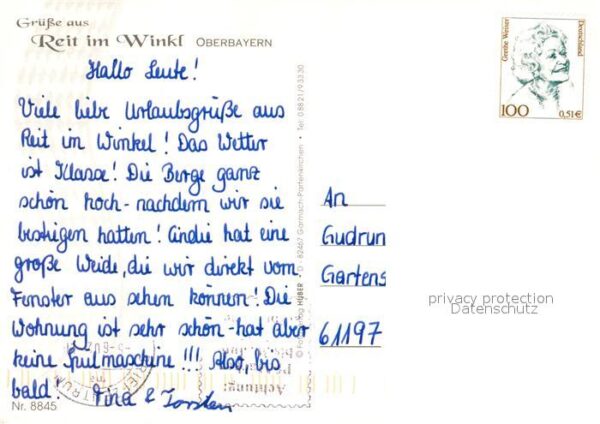 Grüße aus
Reit im Winkl OBERBAYERN
Hallo Leute!
Viele liebe Urlaubsgrüße aus
Reit im Winkel! Das Wetter
ist Klasse! Die Berge ganz
schön hoch - nachdem wir sie
bestiegen hatten! Cindie hat eine
große Weide, die wir direkt vom
Fenster aus sehen können! Die
Wohnung ist sehr schön - hat aber
keine Spülmaschine!!! Also, bis
bald! Tina & Torsten
Nr. 8845
HUBER · D - 82467 Garmisch-Partenkirchen · Tel. 0 88 21 / 9 33 30
Grethe Weiser
Deutschland
100 0,51€
An
Gudrun
Gartens
61197
privacy protection
Datenschutz
Achtung!